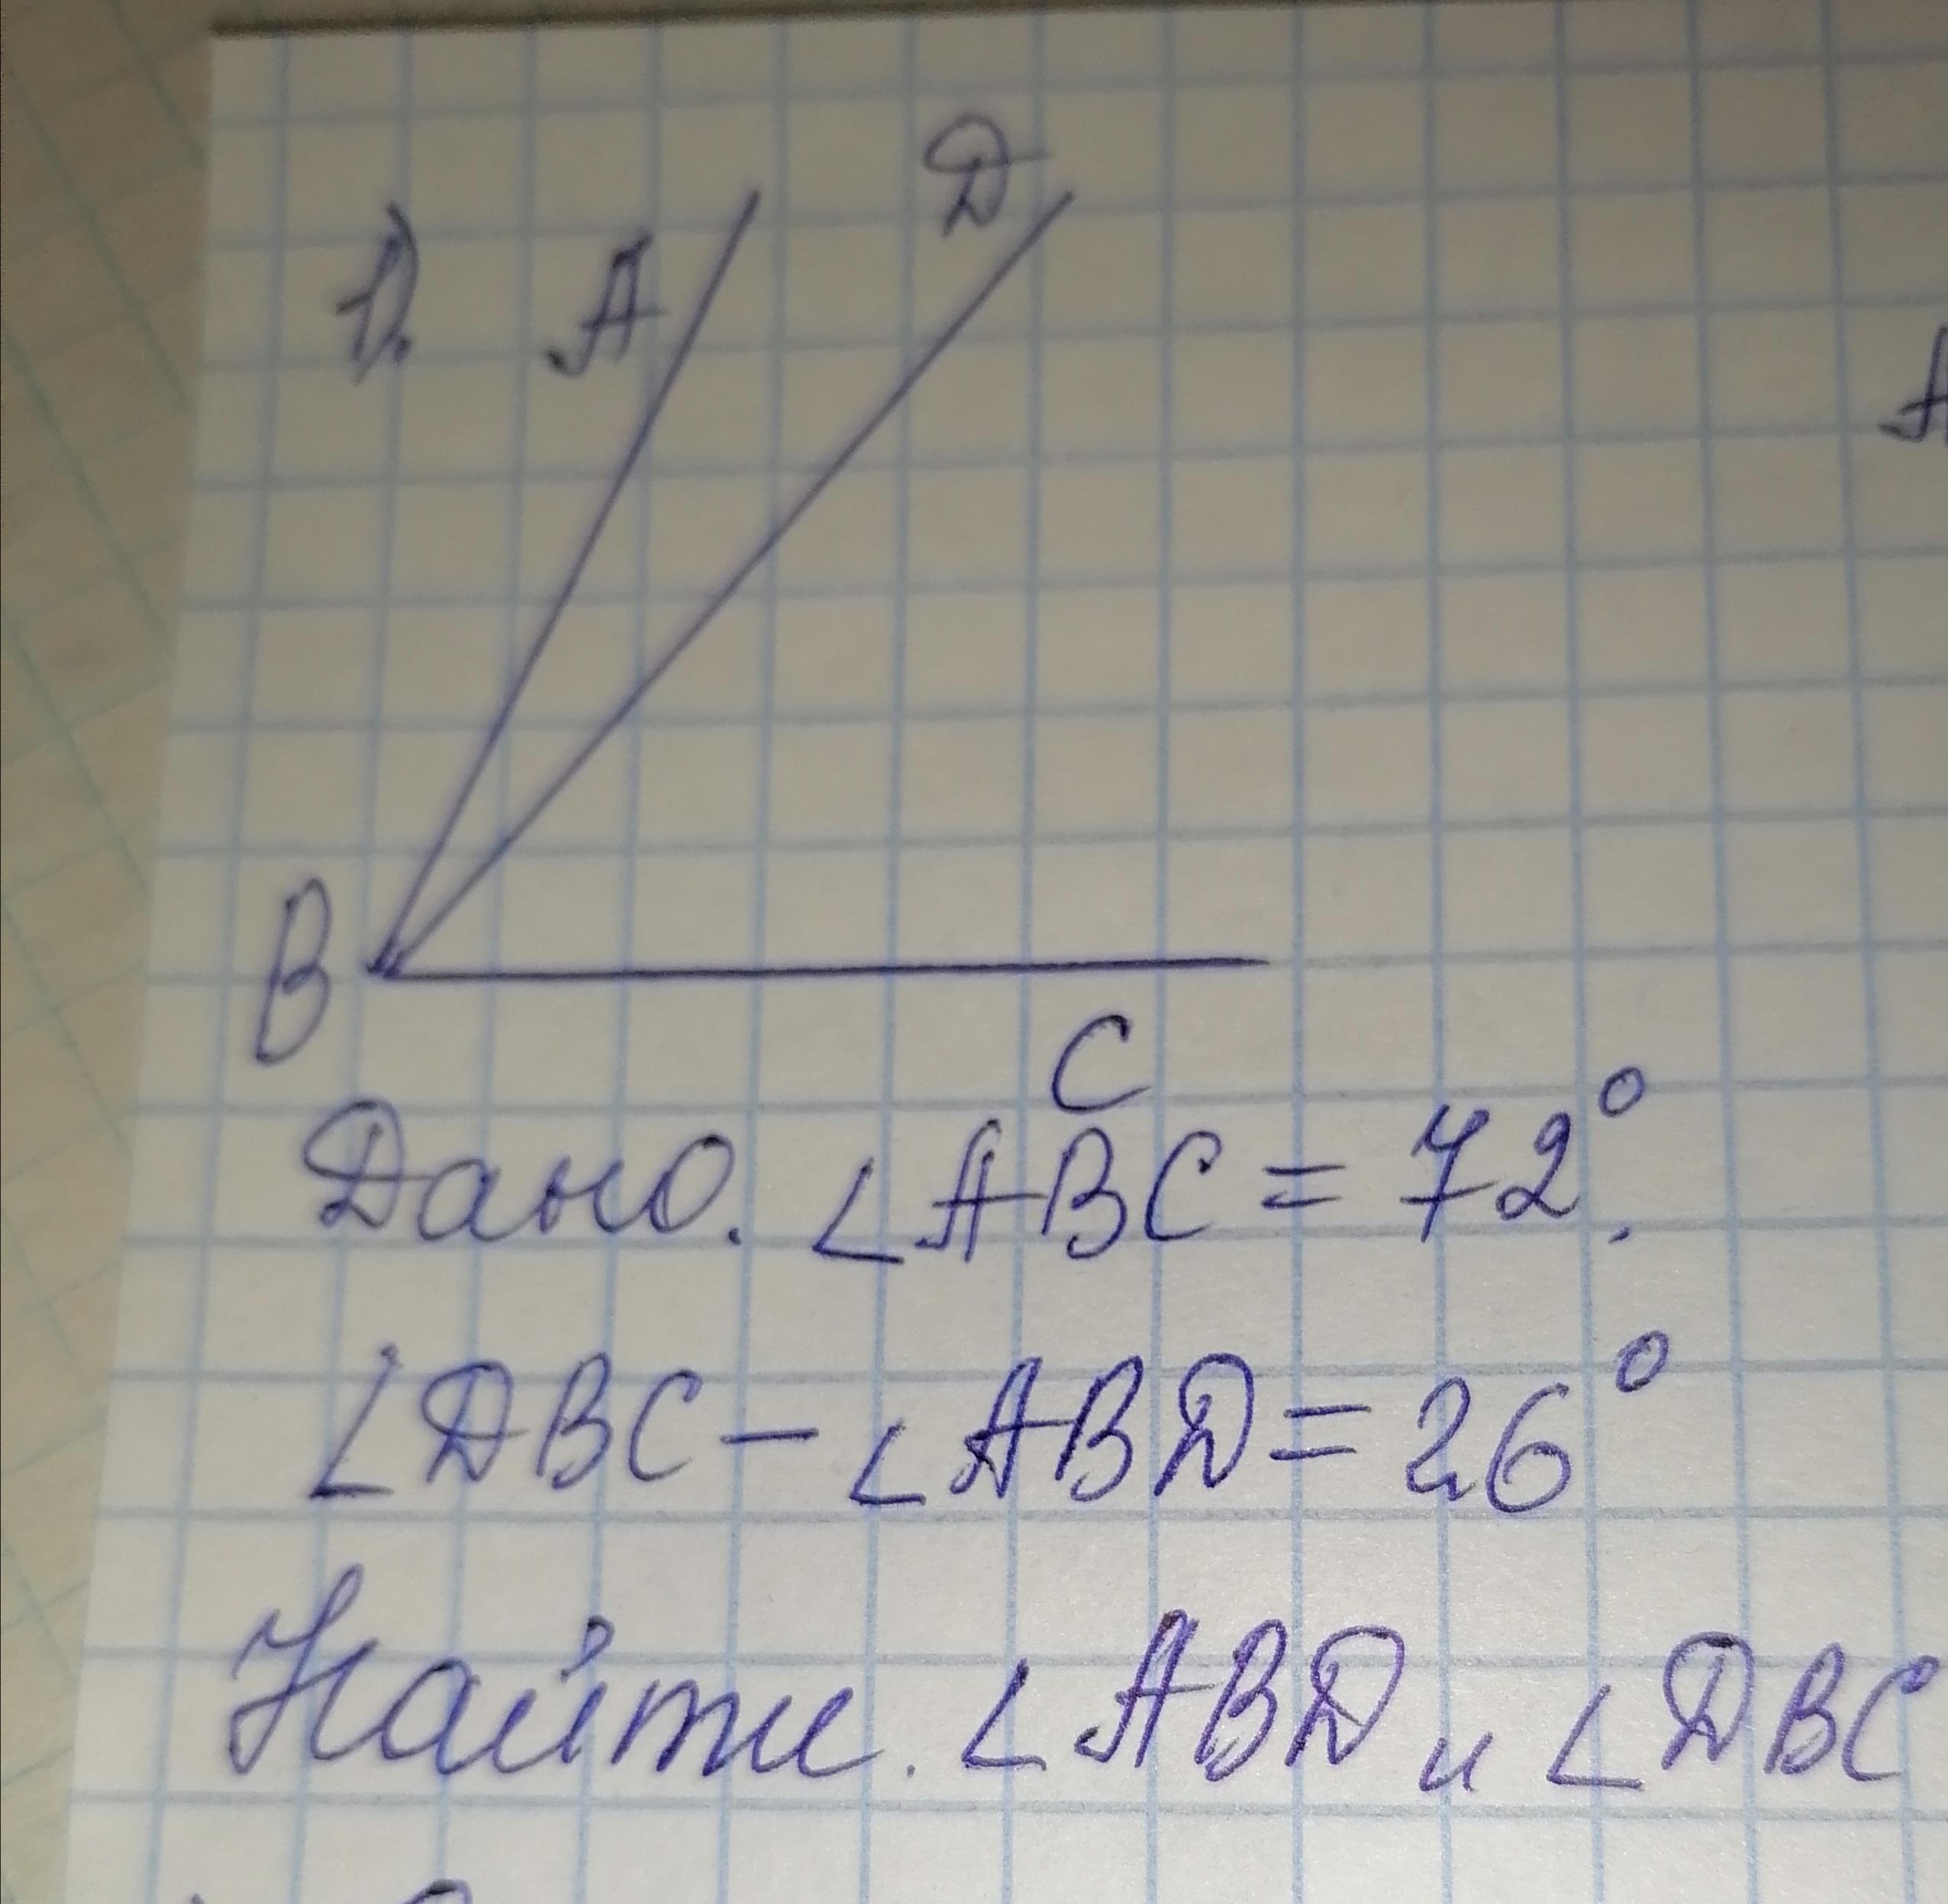 1).
A
D
A
B
C
Дано. ∠ABC = 72°.
∠DBC - ∠ABD = 26°
Найти. ∠ABD и ∠DBC